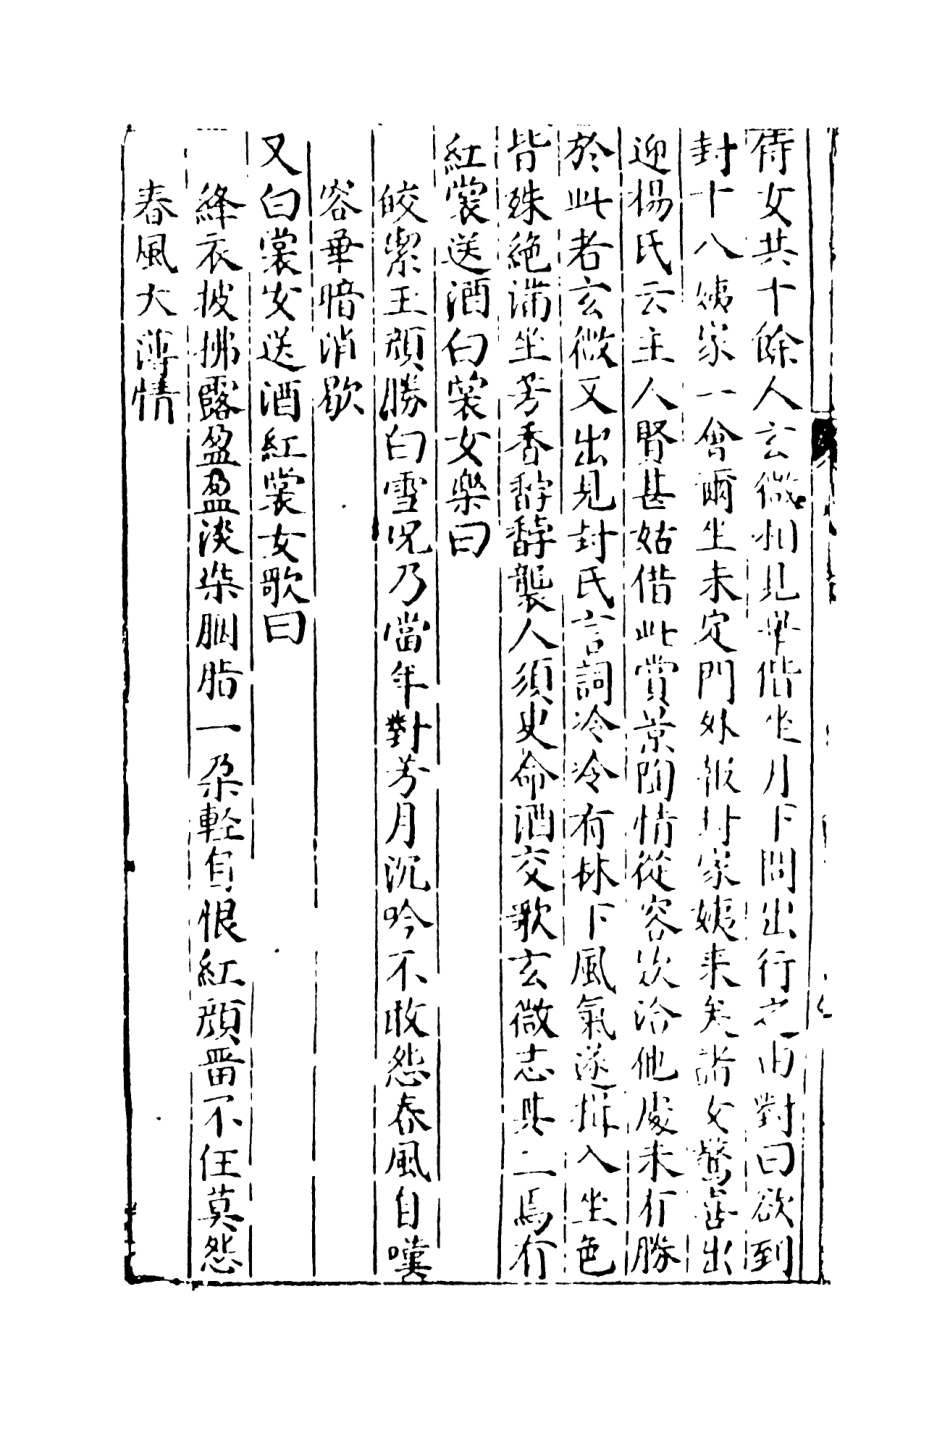 侍女共十餘人玄微相見畢偕坐月下問出行之由對曰欲到
封十八姨家一會爾坐未定門外報封家姨來矣諸女驚喜出
迎楊氏云主人賢甚姑借此賞景陶情從容欢洽他處未有勝
於此者玄微又出見封氏言詞冷冷有林下風氣遂揖入坐色
皆殊絶滿坐芳香馞馞襲人須臾命酒交歌玄微志其二焉有
紅裳送酒白裳女樂曰
皎潔玉顔勝白雪况乃當年對芳月沉吟不敢怨春風自嘆
容華暗消歇
又白裳女送酒紅裳女歌曰
絳衣披拂露盈盈淡染胭脂一朶輕自恨紅顔畱不住莫怨
春風大薄情